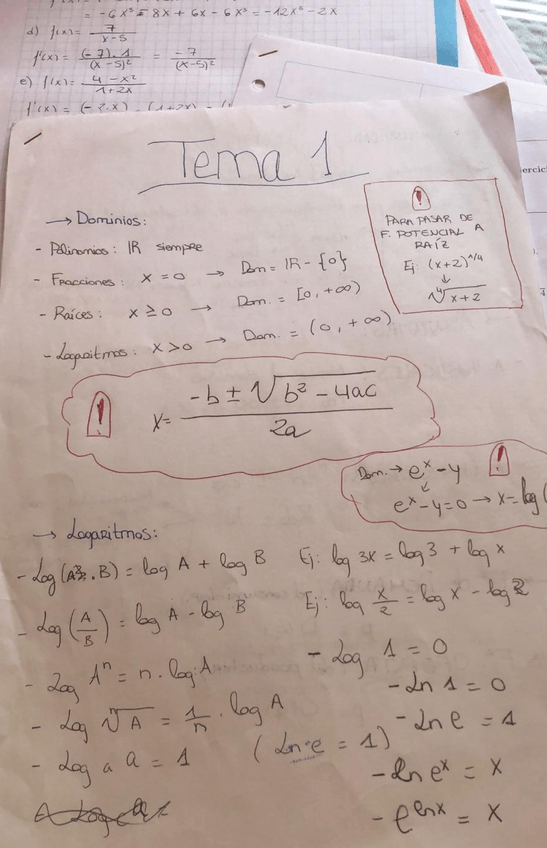 = -6x³ - 8x + 6x - 6x³ = -12x³ - 2x
d) f(x) = 7/(x-5)
f'(x) = (-7)·1/(x-5)² = -7/(x-5)²
e) f(x) = (4-x²)/(1+2x)
f'(x) = (-2·x)·(1+2x) - (
Tema 1
→ Dominios:
- Polinomios: IR siempre
- Fracciones: x = 0 → Dom = IR - {0}
- Raíces: x ≥ 0 → Dom. = [0, +∞)
- Logaritmos: x > 0 → Dom. = (0, +∞)
!
PARA PASAR DE
F. POTENCIAL A
RAÍZ
Ej: (x+2)^1/4
↓
⁴√(x+2)
!
x = (-b ± √(b² - 4ac))/2a
Dom. → eˣ - 4
!
eˣ - 4 = 0 → x = log(
→ Logaritmos:
- Log (A·B) = log A + log B Ej: log 3x = log 3 + log x
- Log (A/B) = log A - log B Ej: log x/2 = log x - log 2
- Log Aⁿ = n · log A
- Log ⁿ√A = 1/n · log A
- Log a a = 1 (Ln e = 1)
- Log 1 = 0
- Ln 1 = 0
- Ln e = 1
- Ln eˣ = x
- e^lnx = x